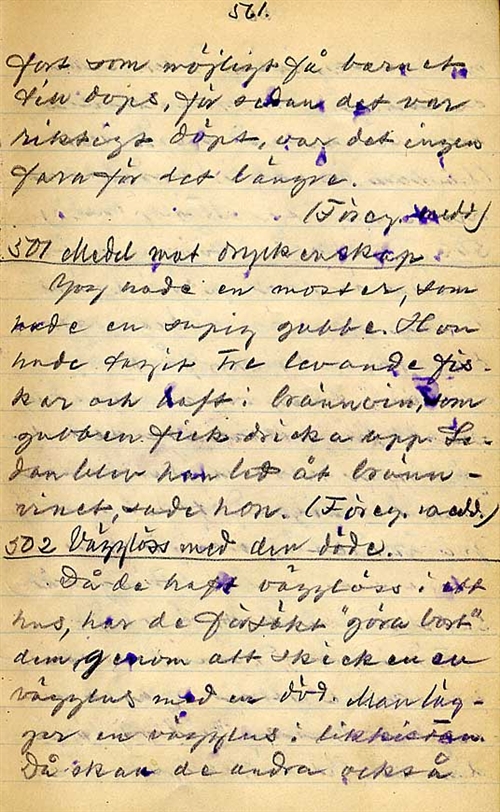 561.
fort som möjligt få barnet
till dops, för sedan det var
riktigt döpt, var det ingen
fara för det längre.
(Föreg. medd)
501 Medel mot dryckenskap
Jag hade en moster, som
hade en supig gubbe. Hon
hade tagit tre levande fis-
kar och haft i brännvin, som
gubben fick dricka upp. Se-
dan blev han led åt bränn-
vinet, sade hon. (Föreg. medd.)
502 Vägglöss med den döde.
Då de haft vägglöss i ett
hus, har de försökt "göra bort"
dem, genom att skicka en
vägglus med en död. Man läg-
ger en vägglus i likkistan.
Då skall de andra också